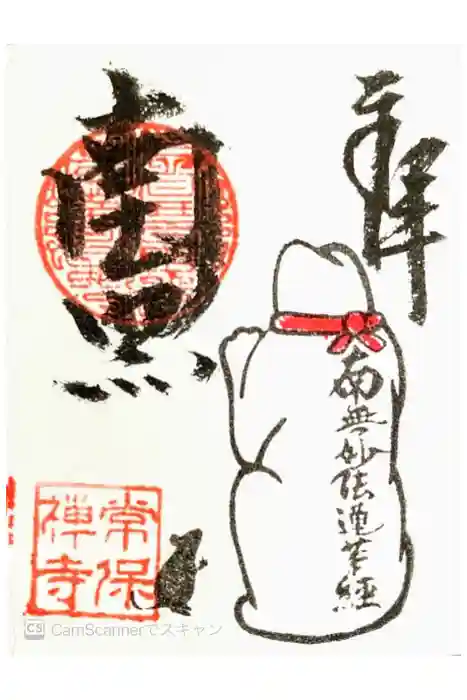 奉拝
南無妙法蓮華経
南
常保
禅寺
CS CamScannerでスキャン